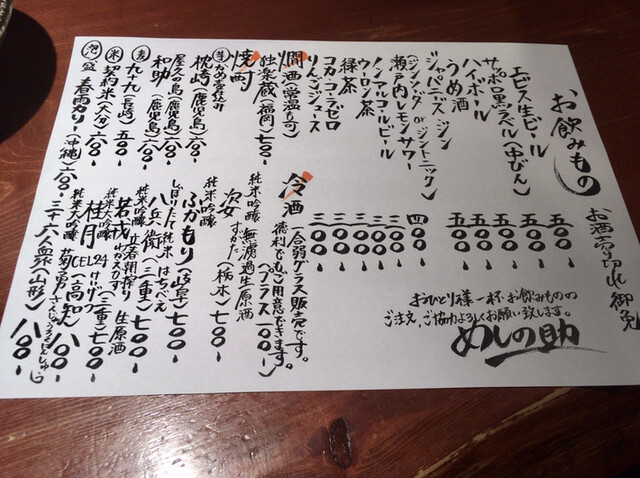 お酒売り切れ御免
お飲みもの
エビス生ビール 五〇〇
サッポロ黒ラベル(中びん) 五〇〇
ハイボール 五〇〇
うめ酒 五〇〇
ジャパニーズジン 五〇〇
(ジンソーダ or ジントニック)
瀬戸内レモンサワー 五〇〇
ノンアルコールビール 四〇〇
ウーロン茶 三〇〇
緑茶 三〇〇
コカ・コーラゼロ 三〇〇
りんごジュース 三〇〇
おひとり様一杯、お飲みものの
ご注文、ご協力よろしくお願い致します。
めしの助
燗酒(常温も可)
独楽蔵(福岡)七〇〇
焼酎
芋 かめ壺仕込み
枕崎(鹿児島)六〇〇
屋久の島(鹿児島)六〇〇
和助(鹿児島)六〇〇
麦 九十九(長崎)五〇〇
米 契約米(大分)五〇〇
泡盛 春雨カリー(沖縄)六〇〇
冷酒 一合弱グラス販売です。
徳利でもご用意できます。
(プラス一〇〇)
純米吟醸 無濾過生原酒
姿 すがた(栃木)七〇〇
純米吟醸
ふかもり(岐阜)七〇〇
しぼりたて純米 はちべえ
八兵衛(三重)七〇〇
純米吟醸 立春朝搾り 生原酒
若戎 わかえびす(三重)七〇〇
純米大吟醸 CEL24 けいげつ
桂月(高知)八〇〇
純米大吟醸
三十六人衆(山形)八〇〇